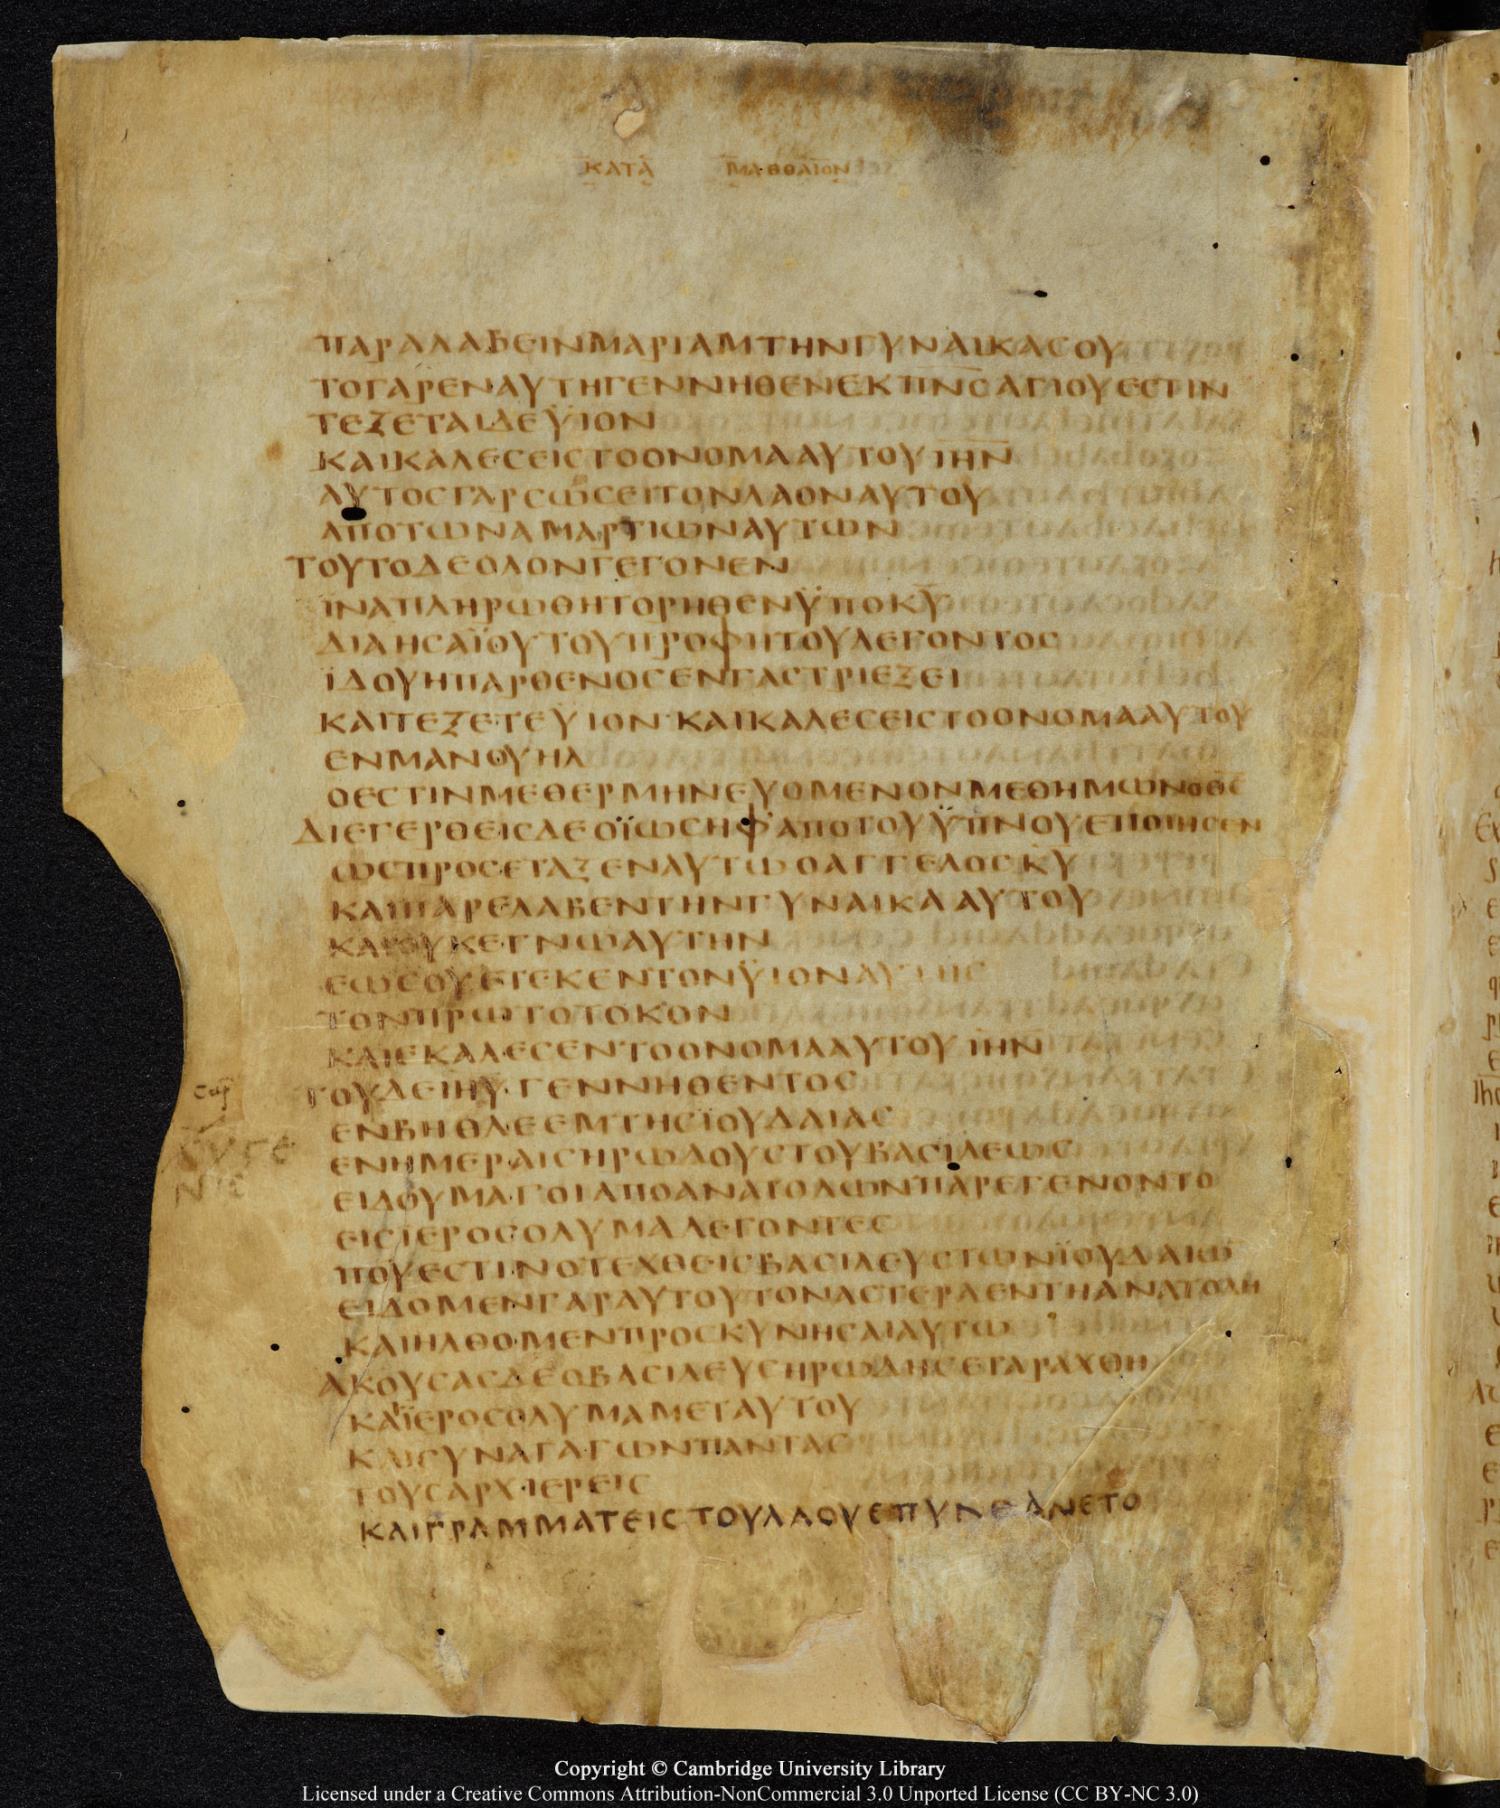 ΚΑΤΑ ΜΑΘΘΑΙΟΝ
ΠΑΡΑΛΑΒΕΙΝΜΑΡΙΑΜΤΗΝΓΥΝΑΙΚΑCΟΥ
ΤΟΓΑΡΕΝΑΥΤΗΓΕΝΝΗΘΕΝΕΚΠΝ̅C̅ΑΓΙΟΥΕCΤΙΝ
ΤΕΞΕΤΑΙΔΕΫΙΟΝ
ΚΑΙΚΑΛΕCΕΙCΤΟΟΝΟΜΑΑΥΤΟΥΙ̅Η̅Ν̅
ΑΥΤΟCΓΑΡCΩCΕΙΤΟΝΛΑΟΝΑΥΤΟΥ
ΑΠΟΤΩΝΑΜΑΡΤΙΩΝΑΥΤΩΝ
ΤΟΥΤΟΔΕΟΛΟΝΓΕΓΟΝΕΝ
ΪΝΑΠΛΗΡΩΘΗΤΟΡΗΘΕΝΫΠΟΚ̅Υ̅
ΔΙΑΗCΑΪΟΥΤΟΥΠΡΟΦΗΤΟΥΛΕΓΟΝΤΟC
ΪΔΟΥΗΠΑΡΘΕΝΟCΕΝΓΑCΤΡΙΕΞΕΙ
ΚΑΙΤΕΞΕΤΕΫΙΟΝ·ΚΑΙΚΑΛΕCΕΙCΤΟΟΝΟΜΑΑΥΤΟΥ
ΕΝΜΑΝΟΥΗΛ
ΟΕCΤΙΝΜΕΘΕΡΜΗΝΕΥΟΜΕΝΟΝΜΕΘΗΜΩΝΟΘ̅C̅
ΔΙΕΓΕΡΘΕΙCΔΕΟΪΩCΗΦΑΠΟΤΟΥΫΠΝΟΥΕΠΟΙΗCΕΝ
ΩCΠΡΟCΕΤΑΞΕΝΑΥΤΩΟΑΓΓΕΛΟCΚ̅Υ̅
ΚΑΙΠΑΡΕΛΑΒΕΝΤΗΝΓΥΝΑΙΚΑΑΥΤΟΥ
ΚΑΙΟΥΚΕΓΝΩΑΥΤΗΝ
ΕΩCΟΥΕΤΕΚΕΝΤΟΝΫΙΟΝΑΥΤΗC
ΤΟΝΠΡΩΤΟΤΟΚΟΝ
ΚΑΙΕΚΑΛΕCΕΝΤΟΟΝΟΜΑΑΥΤΟΥΙ̅Η̅Ν̅
ΤΟΥΔΕΙ̅Η̅Υ̅·ΓΕΝΝΗΘΕΝΤΟC
ΕΝΒΗΘΛΕΕΜΤΗCΪΟΥΔΑΙΑC
ΕΝΗΜΕΡΑΙCΗΡΩΔΟΥCΤΟΥΒΑCΙΛΕΩC
ΕΙΔΟΥΜΑΓΟΙΑΠΟΑΝΑΤΟΛΩΝΠΑΡΕΓΕΝΟΝΤΟ
ΕΙCΪΕΡΟCΟΛΥΜΑΛΕΓΟΝΤΕC
ΠΟΥΕCΤΙΝΟΤΕΧΘΕΙCΒΑCΙΛΕΥCΤΩΝΪΟΥΔΑΙΩ̅
ΕΙΔΟΜΕΝΓΑΡΑΥΤΟΥΤΟΝΑCΤΕΡΑΕΝΤΗΑΝΑΤΟΛΗ
ΚΑΙΗΛΘΟΜΕΝΠΡΟCΚΥΝΗCΑΙΑΥΤΩ
ΑΚΟΥCΑCΔΕΟΒΑCΙΛΕΥCΗΡΩΔΗCΕΤΑΡΑΧΘΗ
ΚΑΪΕΡΟCΟΛΥΜΑΜΕΤΑΥΤΟΥ
ΚΑΙCΥΝΑΓΑΓΩΝΠΑΝΤΑC
ΤΟΥCΑΡΧΙΕΡΕΙC
ΚΑΙΓΡΑΜΜΑΤΕΙCΤΟΥΛΑΟΥΕΠΥΝΘΑΝΕΤΟ
Copyright © Cambridge University Library
Licensed under a Creative Commons Attribution-NonCommercial 3.0 Unported License (CC BY-NC 3.0)